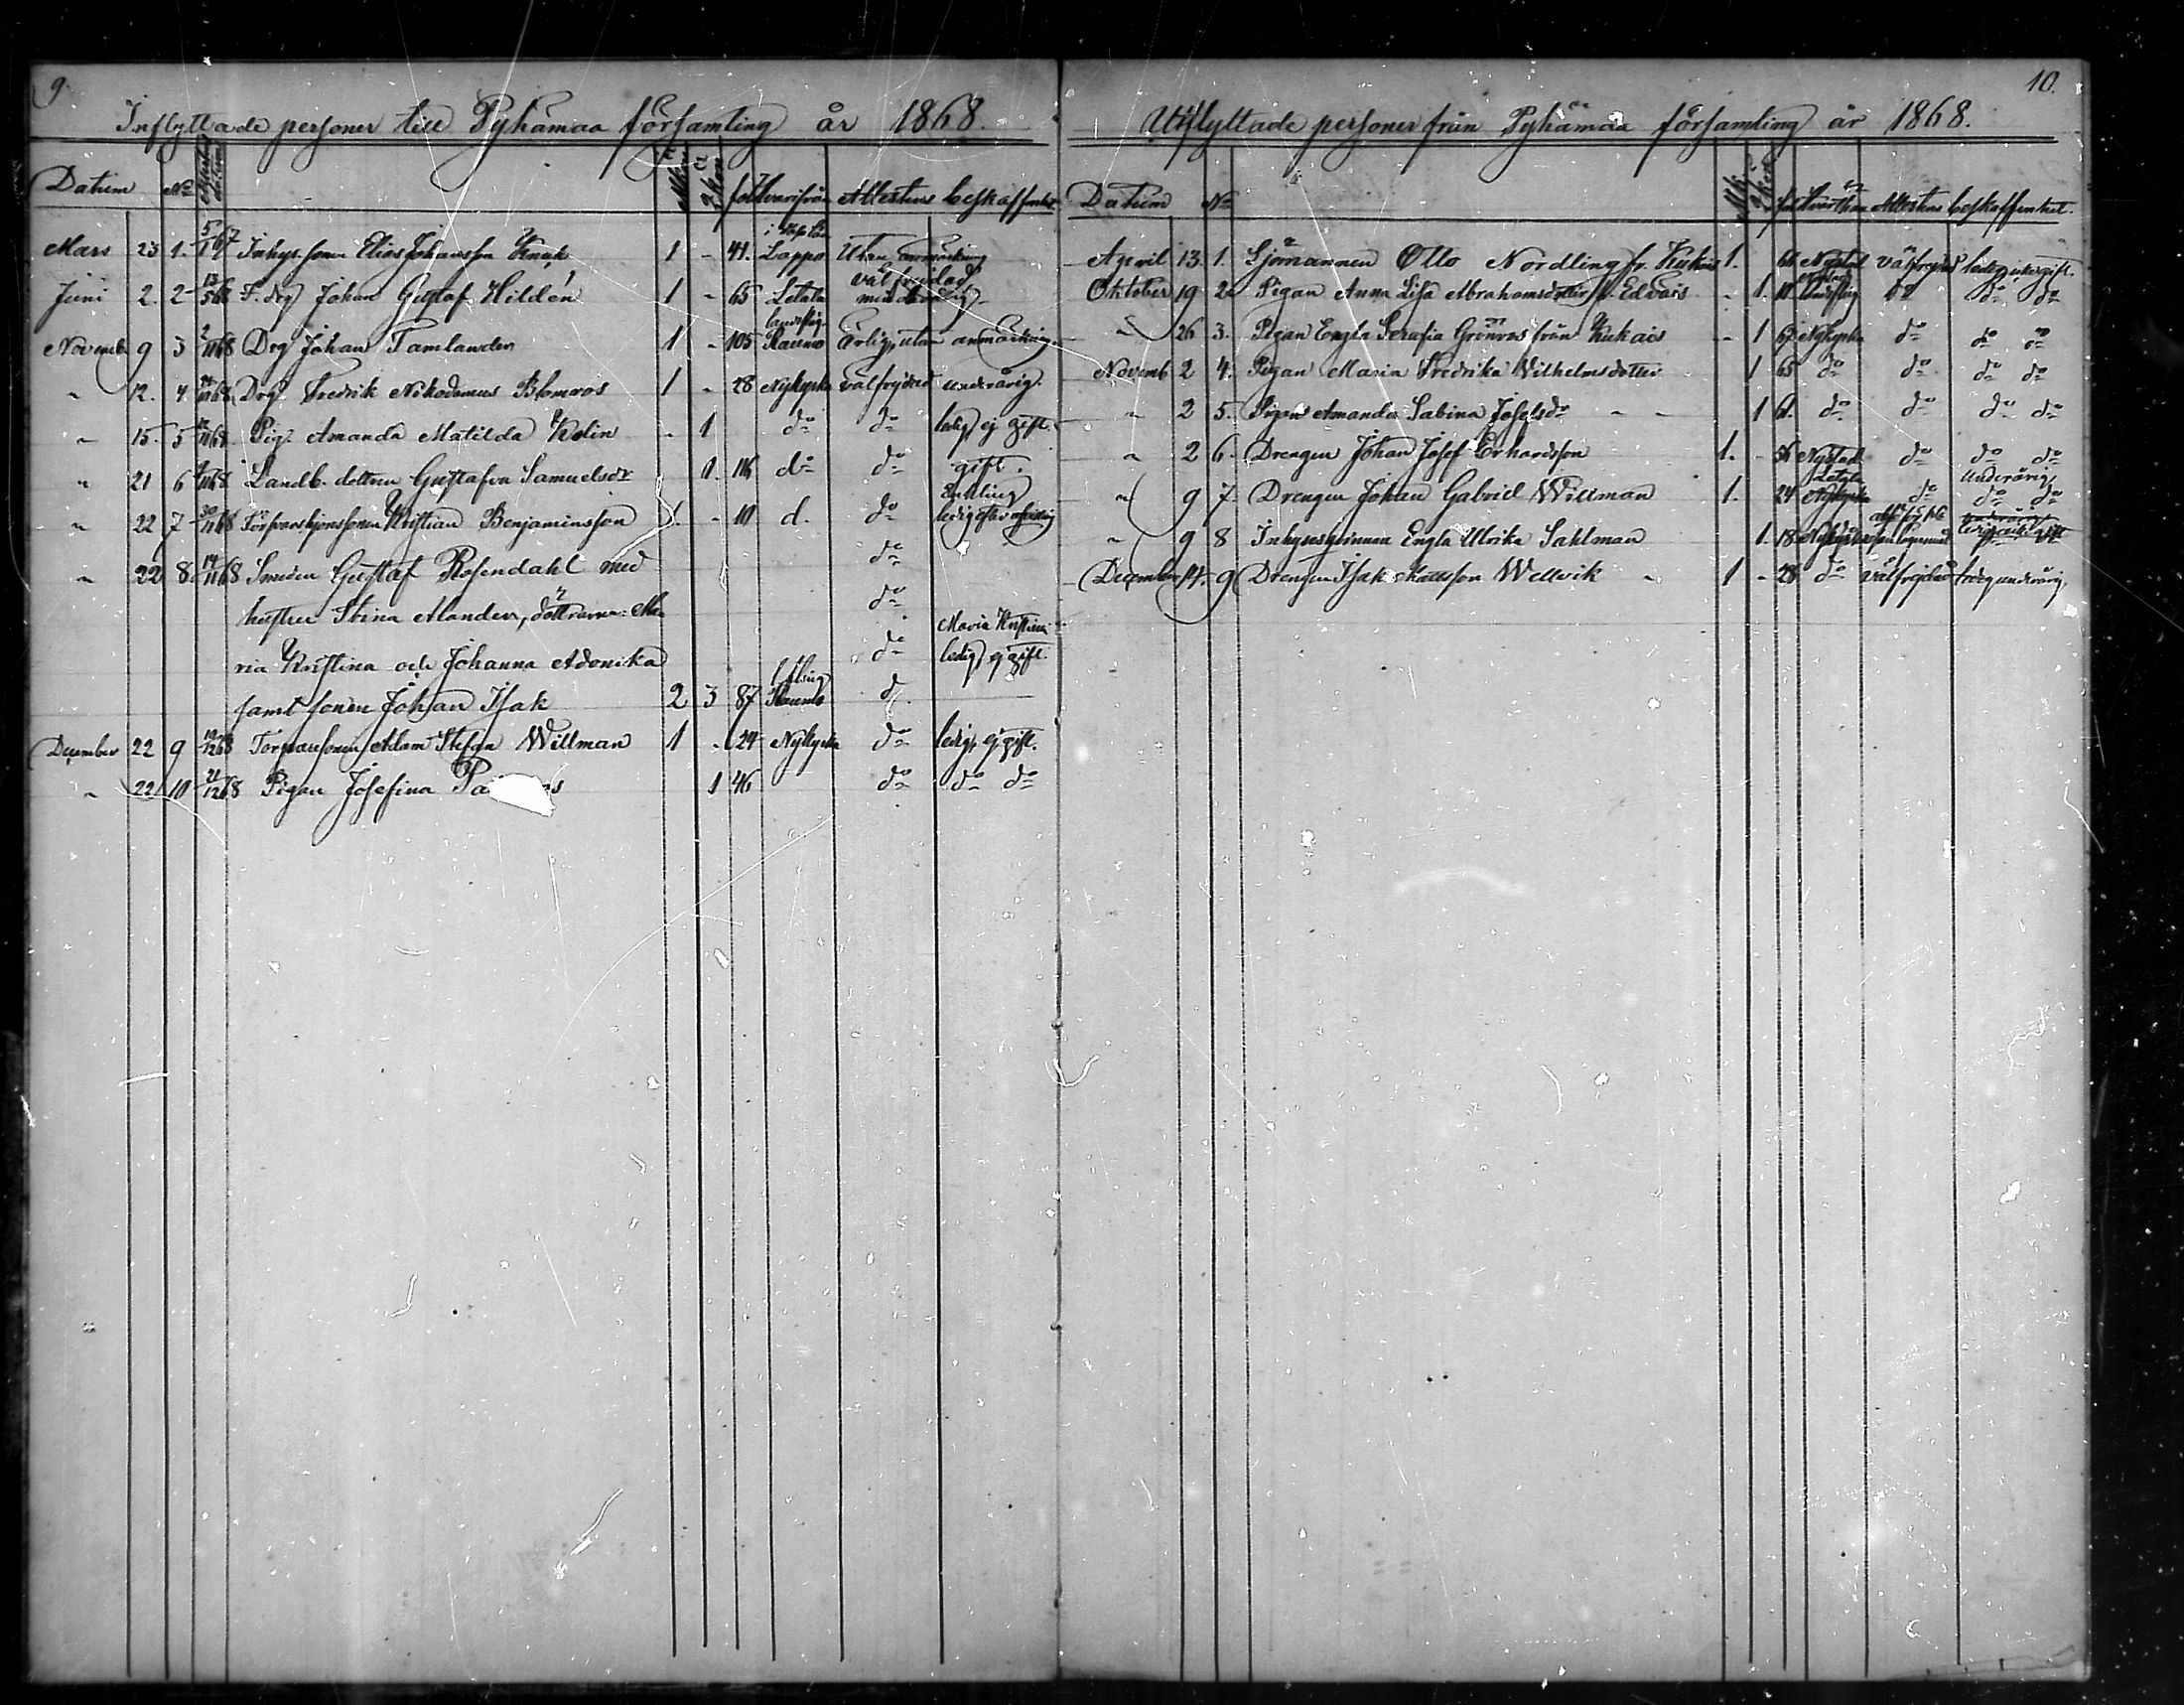 9.
Inflyttade personer till Pyhämaa församling år 1868.
Datum No Mk. Qk. fol. Hvarifrån Attestens beskaffenhet
Mars 23 1. Inhys.sonen Elias Johansson 1 - 41. Lappo Utan anmärkning
Juni 2. 2 13/5 68 F. drg Johan Gustaf Hildén 1 - 65 Letala välfrejdad
Novemb. 9 3 2/11 68 Drg Johan Tamlander 1 - 105 Raumo landsförs. ärlig, utan anmärkning.
" 12. 4. Drg. Fredrik Nikodemus Blomroos 1 - 28 Nykyrka välfrejdad underårig.
" 15. 5 Pig. Amanda Matilda Kolin - 1 do do ledig, ej gift.
" 21 6 Landb. dottren Gustafva Samuelsdr 1. 116 do do gift.
" 22 7 30/11 68 Kristian Benjaminsson 1. - 111 d. do Enkling
" 22 8. 14/11 68 Smeden Gustaf Rosendahl med do
hustru Stina Alander, döttrarna: Ma- do
ria Kristina och Johanna Adonika do Maria Kristina
ledig, ej gift.
samt sonen Johan Isak 2 3 87 Raumo d.
December 22 9 19/12 68 Torparesonen Adam Stefan Willman 1 - 24 Nykyrka do ledig, ej gift.
" 22 10 21/12 68 Pigan Josefina 1 46 do do do
10.
Utflyttade personer från Pyhämaa församling år 1868.
Datum No Mk. Qk. fol. Hvarthän Attestens beskaffenhet.
April 13. 1. Sjömannen Otto Nordling fr. Kukais 1. Nystad välfrejdad ledig, icke gift.
Oktober 19 2. Pigan Anna Lisa Abrahamsdotter fr. Edvais - 1. do do do
" 26 3. Pigan Engla Serafia Grönroos från Kukais - 1 67 Nykyrka do do do
Novemb 2 4. Pigan Maria Fredrika Wilhelmsdotter 1 65 do do do do
" 2 5. Pigan Amanda Sabina Josefsdr - - 1 61. do do do do
" 2 6. Drengen Johan Josef Erhardsson 1. - 56 Nystad do do do
" 9 7. Drengen Johan Gabriel Willman 1. 24 Letala Nykyrka do Underårig, do do
" 9 8 Inhyseqvinnan Engla Ulrika Sahlman 1. 18 Nykyrka
December 14. 9 Drengen Isak Mattsson Wellvik - 1 - 28 do välfrejdad ledig underårig.